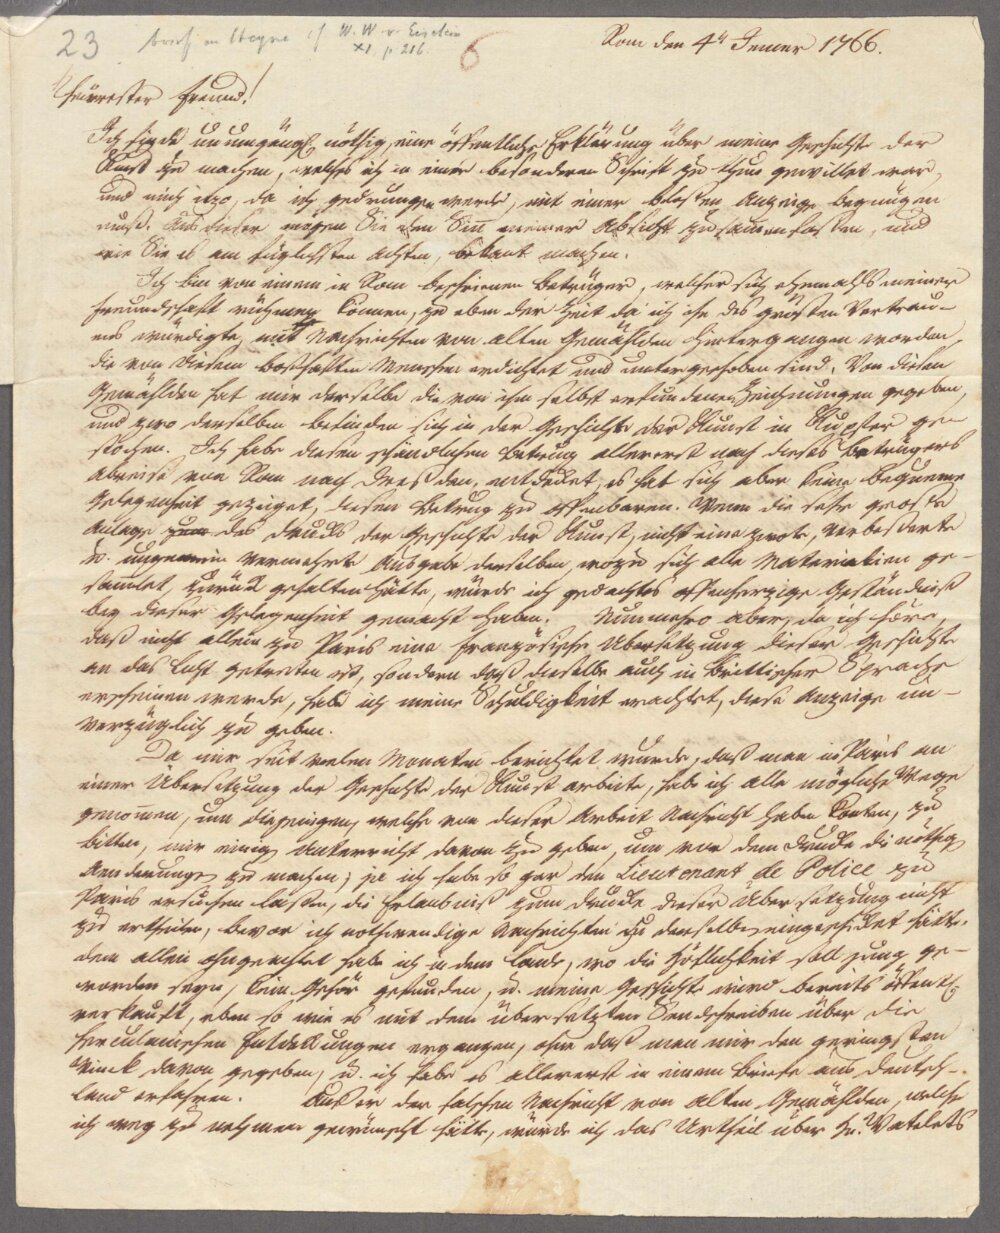 23 Brief an Heyne cf W. W. v. Eiselein
XI, p. 216.
6
Rom den 4t Jenner 1766.
Theurester Freund!
Ich finde unumgängl. nöthig, eine öffentliche Erklärung über meine Geschichte der
Kunst zu machen, welches ich in einer besonderen Schrift zu thun gewillet war,
und mich itzo, da ich gedrungen werde, mit einer bloßen Anzeige begnügen
muß. Aus dieser mögen Sie den Sinn meiner Absicht zusammenfassen, und
wie Sie es am füglichsten achten, bekant machen.
Ich bin von einem in Rom beschrienen Betrüger, welcher sich ehemahls meiner
Freundschaft rühmen können, zu eben der Zeit da ich ihn des größten Vertrau-
ens würdigte, mit Nachrichten von alten Gemählden hintergangen worden,
die von diesem boßhaften Menschen erdichtet und untergeschoben sind. Von diesen
Gemählden hat mir derselbe die von ihm selbst erfundenen Zeichnungen gegeben,
und zwo derselben befinden sich in der Geschichte der Kunst in Kupfer ge-
stochen. Ich habe diesen schändlichen Betrug allererst nach dieses Betrügers
Abreise von Rom nach Dresden, entdecket, es hat sich aber keine bequeme
Gelegenheit gezeiget, diesen Betrug zu offenbaren. Wenn die sehr große
Anlage des Drucks der Geschichte der Kunst, nicht eine zwote, verbesserte
u. ungemein vermehrte Ausgabe derselben, wozu sich alle Materialien ge-
samlet, zurück gehalten hätte, würde ich gedachtes offenherzige Geständniß
bey dieser Gelegenheit gemacht haben. Nunmehro aber, da ich höre,
daß nicht allein zu Paris eine französische Übersetzung dieser Geschichte
an das Licht getreten ist, sondern daß dieselbe auch in Brittischer Sprache
erscheinen werde, habe ich meine Schuldigkeit erachtet, diese Anzeige un-
verzüglich zu geben.
Da mir seit vielen Monaten berichtet wurde, daß man in Paris an
einer Übersetzung der Geschichte der Kunst arbeite, habe ich alle mögliche Wege
genommen, um diejenigen, welche von dieser Arbeit Nachricht haben konten, zu
bitten, mir einigen Unterricht davon zu geben, um vor dem Drucke die nöthig
Aenderungen zu machen; ja ich habe so gar den Lieutenant de Police zu
Paris ersuchen lassen, die Erlaubniß zum Drucke dieser Übersetzung nicht
zu ertheilen, bevor ich nothwendige Nachrichten zu derselben eingeschicket hätte.
dem allen ohngeachtet habe ich in dem Lande, wo die Höflichkeit soll jung ge-
worden seyn, kein Gehör gefunden, u. meine Geschichte wird bereits öffentl.
verkauft, eben so wie es mit dem übersetzten Sendschreiben über die
Herculanischen Entdeckungen ergangen, ohne daß man mir den geringsten
Winck davon gegeben, u. ich habe es allererst in einem Briefe aus Deutsch-
land erfahren. Ausser der falschen Nachricht von alten Gemählden, welche
ich weg zu nehmen gewünscht hätte, würde ich das Urtheil über Hn. Watelets